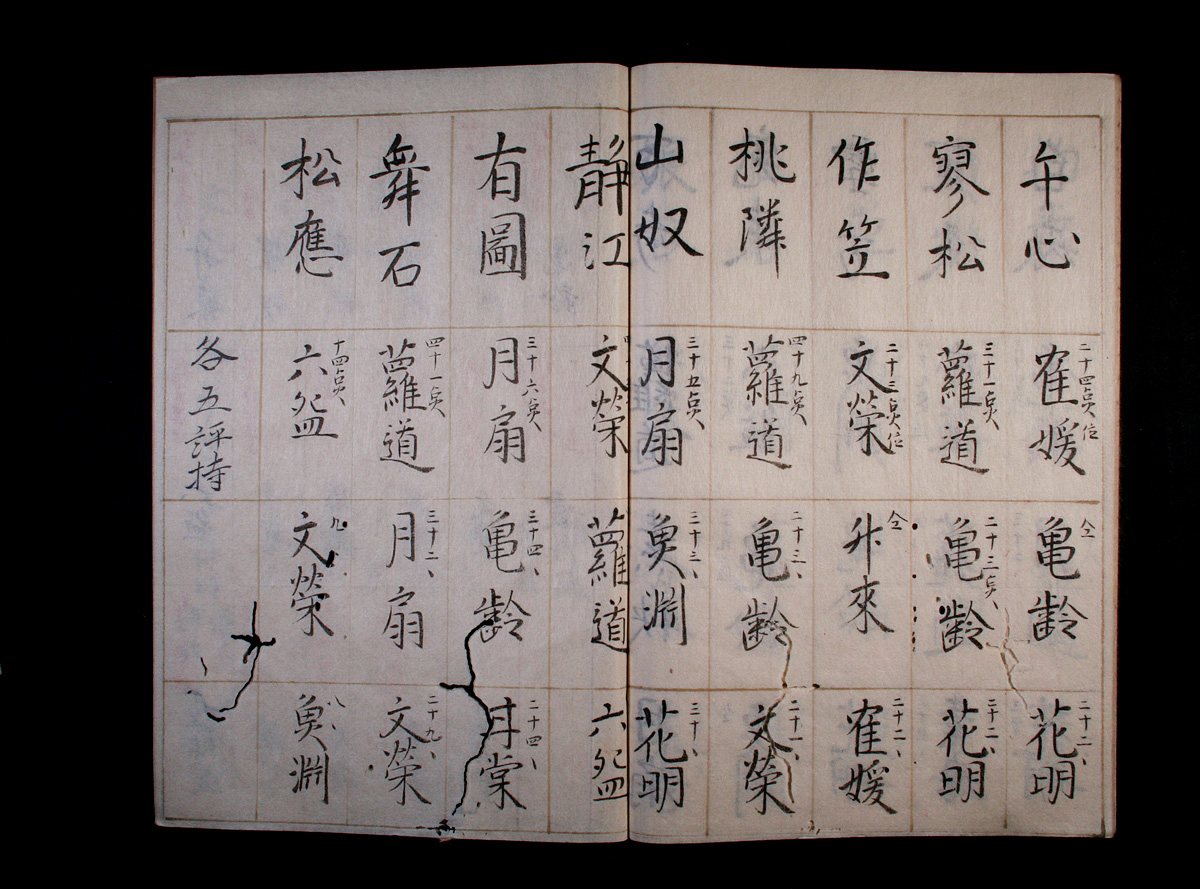 午心
二十四点位
崔媛
仝
亀齢
二十二、
花明
寥松
三十一点、
蘿道
二十三点、
亀齢
二十二、
花明
作笠
二十三点位
文榮
仝
舛來
二十二、
崔媛
桃隣
四十九点、
蘿道
二十三、
亀齢
二十一、
文榮
山奴
三十五点、
月扇
三十三、
奥淵
三十、
花明
静江
文榮
蘿道
六盌
有圖
三十六点、
月扇
三十四、
亀齢
二十四、
棠
舞石
四十一点、
蘿道
三十二、
月扇
二十九、
文榮
松應
十四点、
六盌
九、
文榮
八、
奥淵
各五評持